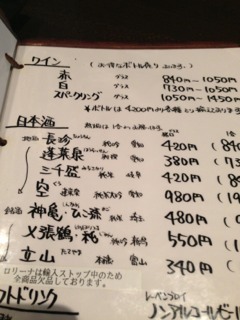 ワイン (お得なボトル売り あります。)
赤 グラス 840円〜1050円
白 グラス 730円〜1050円
スパークリング グラス 1050円〜1450円
＊ボトルは4200円より各種とり揃えております
日本酒
長珍 純米 愛知 420円 (84
蓬莱泉 愛知 380円 (73
三千盛 岐阜 420円 (8
空 純米大吟 愛知 980円 (19
神亀・ひこ孫 純米 埼玉 480円 (
〆張鶴・純 純吟 新潟 550円 (1
立山 本醸 富山 340円 (
ロリーナは輸入ストップ中のため
全商品欠品しております。
フトドリンク
ノンアルコールビール